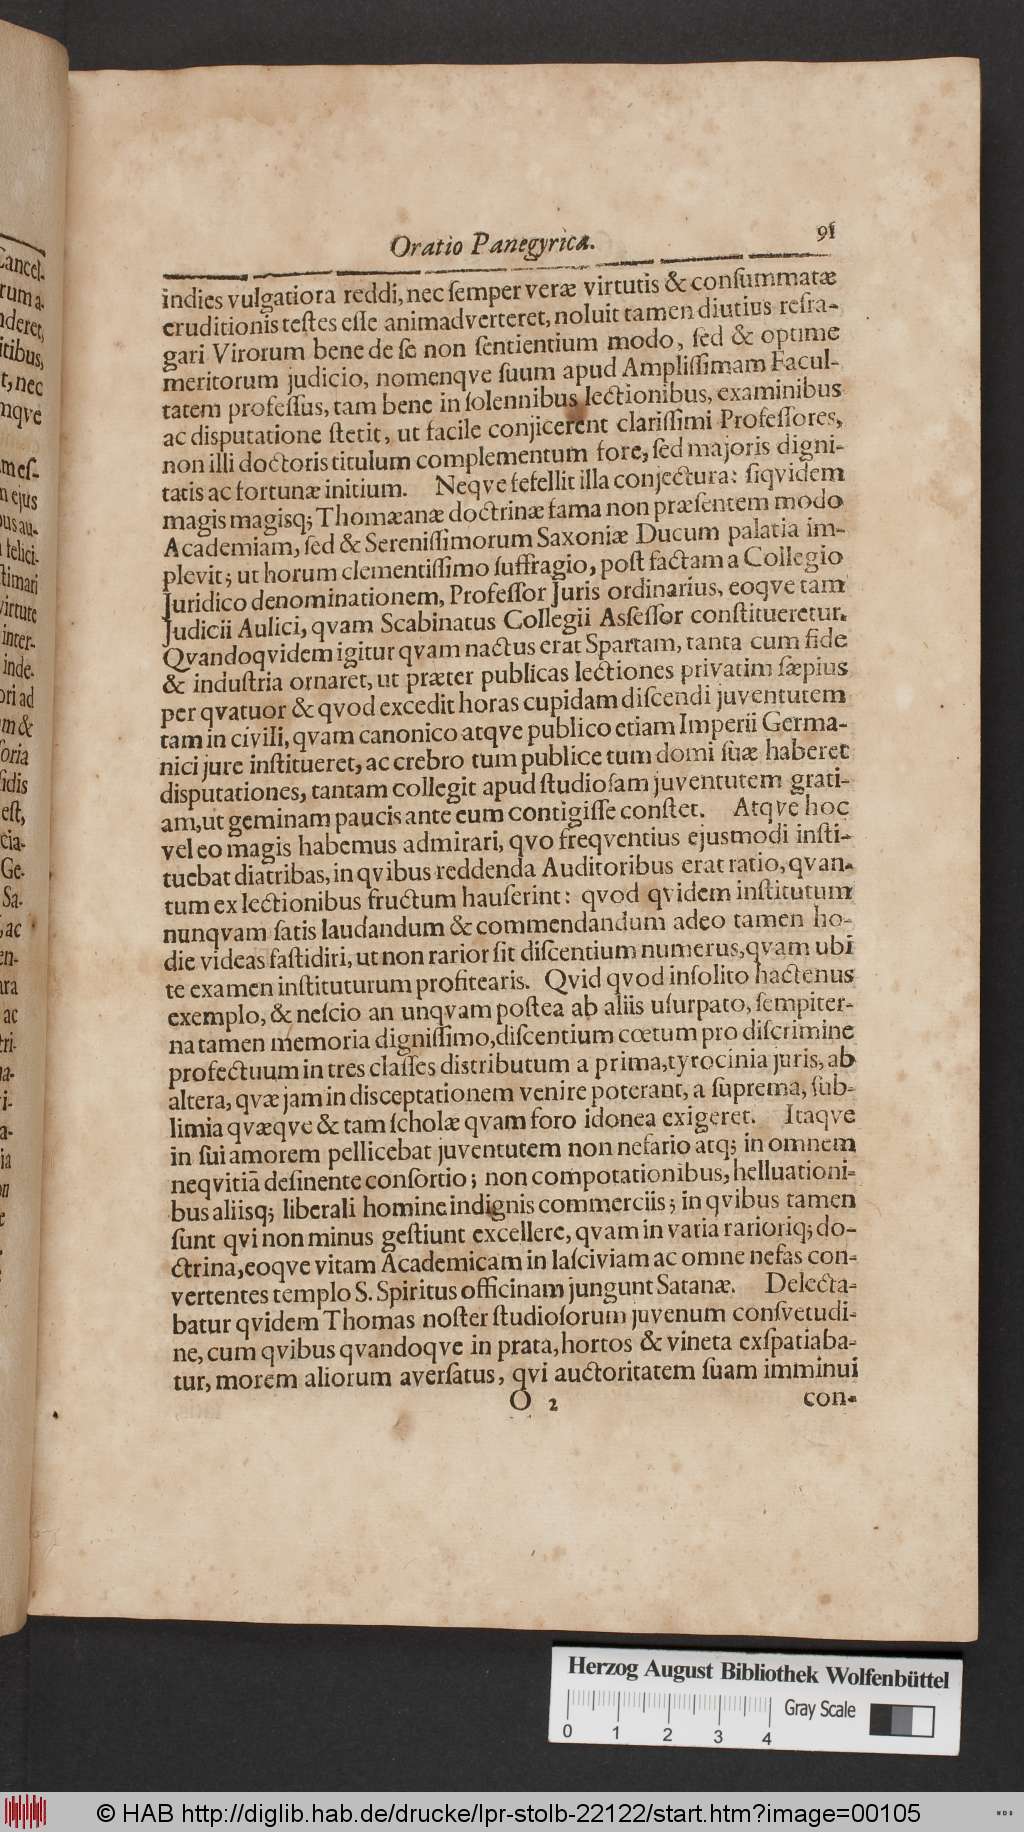 Oratio Panegyrica. 91
indies vulgatiora reddi, nec ſemper veræ virtutis & conſummatæ
eruditionis teſtes eſſe animadverteret, noluit tamen diutius refra-
gari Virorum bene de ſe non ſentientium modo, ſed & optime
meritorum judicio, nomenqve ſuum apud Ampliſſimam Facul-
tatem profeſſus, tam bene in ſolennibus lectionibus, examinibus
ac disputatione ſtetit, ut facile conjicerent clariſſimi Profeſſores,
non illi doctoris titulum complementum fore, ſed majoris digni-
tatis ac fortunæ initium. Neqve fefellit illa conjectura: ſiqvidem
magis magisq; Thomæanæ doctrinæ fama non præſentem modo
Academiam, ſed & Sereniſſimorum Saxoniæ Ducum palatia im-
plevit; ut horum clementiſſimo ſuffragio, poſt factam a Collegio
Juridico denominationem, Profeſſor Juris ordinarius, eoqve tam
Judicii Aulici, qvam Scabinatus Collegii Asſeſſor conſtitueretur.
Qvandoqvidem igitur qvam nactus erat Spartam, tanta cum fide
& induſtria ornaret, ut præter publicas lectiones privatim ſæpius
per qvatuor & qvod excedit horas cupidam diſcendi juventutem
tam in civili, qvam canonico atqve publico etiam Imperii Germa-
nici jure inſtitueret, ac crebro tum publice tum domi ſuæ haberet
disputationes, tantam collegit apud ſtudioſam juventutem grati-
am, ut geminam paucis ante eum contigiſſe conſtet. Atqve hoc
vel eo magis habemus admirari, qvo freqventius ejusmodi inſti-
tuebat diatribas, in qvibus reddenda Auditoribus erat ratio, qvan-
tum ex lectionibus fructum hauſerint: qvod qvidem inſtitutum
nunqvam ſatis laudandum & commendandum adeo tamen ho-
die videas faſtidiri, ut non rarior ſit diſcentium numerus, qvam ubi
te examen inſtituturum profitearis. Qvid qvod inſolito hactenus
exemplo, & neſcio an unqvam poſtea ab aliis uſurpato, ſempiter-
na tamen memoria digniſſimo, diſcentium cœtum pro diſcrimine
profectuum in tres claſſes distributum a prima, tyrocinia juris, ab
altera, qvæ jam in disceptationem venire poterant, a ſuprema, ſub-
limia qvæqve & tam ſcholæ qvam foro idonea exigeret. Itaqve
in ſui amorem pellicebat juventutem non nefario atq; in omnem
neqvitiā deſinente conſortio; non compotationibus, helluationi-
bus aliisq; liberali homine indignis commerciis; in qvibus tamen
ſunt qvi non minus geſtiunt excellere, qvam in varia rarioriq; do-
ctrina, eoqve vitam Academicam in laſciviam ac omne nefas con-
vertentes templo S. Spiritus officinam jungunt Satanæ. Delecta-
batur qvidem Thomas noſter ſtudioſorum juvenum conſvetudi-
ne, cum qvibus qvandoqve in prata, hortos & vineta exſpatiaba-
tur, morem aliorum averſatus, qvi auctoritatem ſuam imminui
O 2 con-
Herzog August Bibliothek Wolfenbüttel
Gray Scale
0 1 2 3 4
© HAB http://diglib.hab.de/drucke/lpr-stolb-22122/start.htm?image=00105